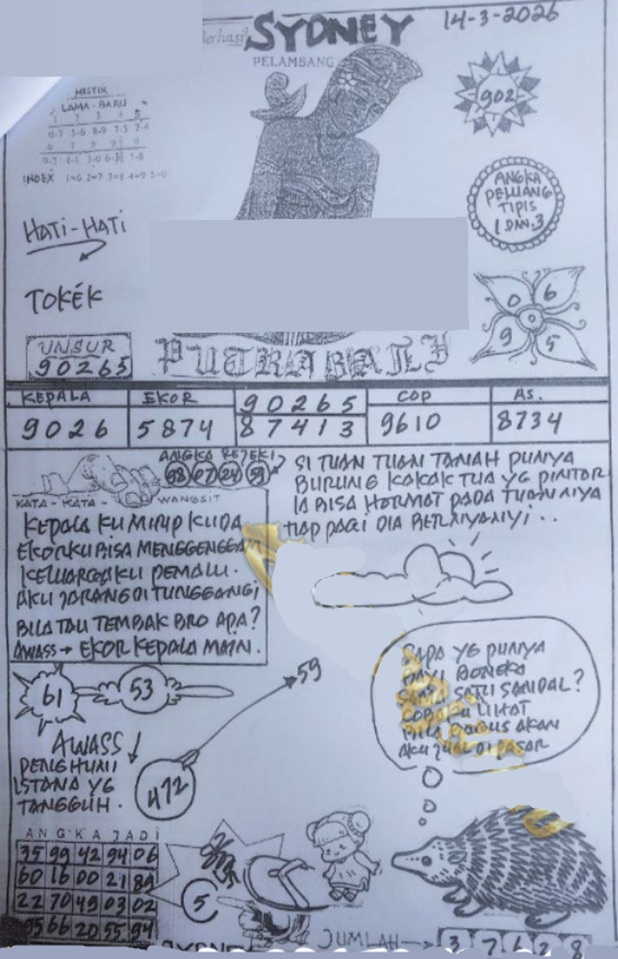 Berhasil SYDNEY 14-3-2026
PELAMBANG
MISTIK
LAMA - BARU
INDEX 1=6 2=7 3=8 4=9 5=0
902
ANGKA
PELUANG
TIPIS
1 DAN 3
HATI-HATI
TOKÉK
0 6
9 5
UNSUR
90265
PUTRA BALI
KEPALA EKOR 90265 COP AS.
9026 5874 87413 9610 8734
ANGKA REJEKI?
98 07 24 59
SI TUAN TUAN TANAH PUNYA
BURUNG KAKAK TUA YG PINTAR
IA BISA HORMAT PADA TUANNIYA
TIAP PAGI DIA BERNIYANIYI . .
KATA - KATA - WANGSIT
KEPALA KU MIRIP KUDA
EKORKU BISA MENGGENGGAM
KELUARGAKU PEMALU.
AKU JARANG DITUNGGANGI
BILA TAU TEMBAK BRO APA?
AWASS → EKOR KEPALA MAIN.
61 53 59
SAPA YG PUNYA
BAYI BONEKA
SATU SANDAL?
COBA KU LIHAT
BILA BAGUS AKAN
AKU JUAL DI PASAR
AWASS
PENGHUNI
ISTANA YG
TANGGUH.
472
ANGKA JADI
35 99 42 94 06
60 16 00 21 89
22 70 49 03 02
95 66 20 55 94
5
SYDNEY
JUMLAH → 3 7 6 2 8